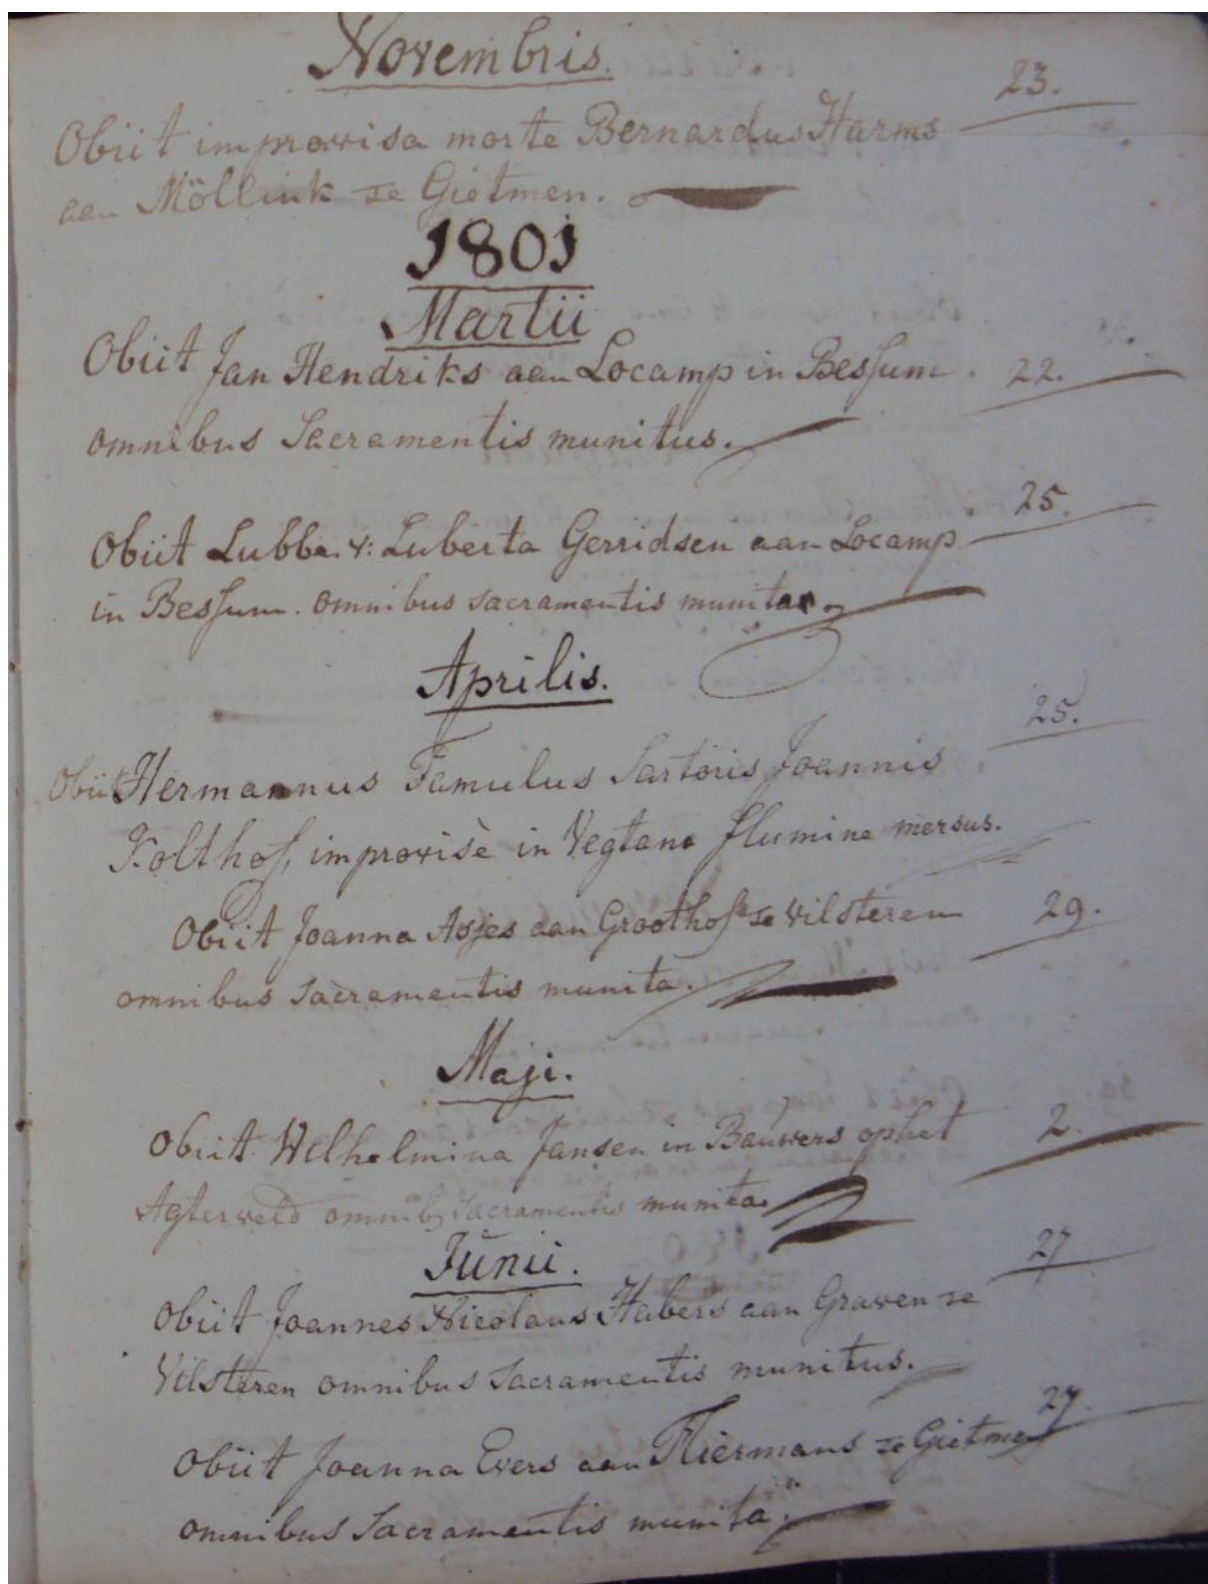 Novembris.
23.
Obiit improvisa morte Bernardus Harms
aan Möllink te Gietmen.
1801
Martii
Obiit Jan Hendriks aan Locamp in Bessum. 22.
omnibus Sacramentis munitus.
25.
Obiit Lubba v: Luberta Gerridsen aan Locamp
in Bessum. omnibus sacramentis munita.
Aprilis.
25.
Obiit Hermannus Famulus Sartoris Joannis
Kolthof, improvisè in Vegtano flumine mersus.
Obiit Joanna Asjes aan Groothof te Vilsteren 29.
omnibus Sacramentis munita.
Maji.
Obiit Wilhelmina Jansen in Bauwers ophet 2.
Agterveld omnib sacramentis munita.
Junii.
27
Obiit Joannes Nicolaus Habers aan Graven te
Vilsteren omnibus Sacramentis munitus.
27.
Obiit Joanna Evers aan Fliermans te Gietmen
omnibus Sacramentis munita.